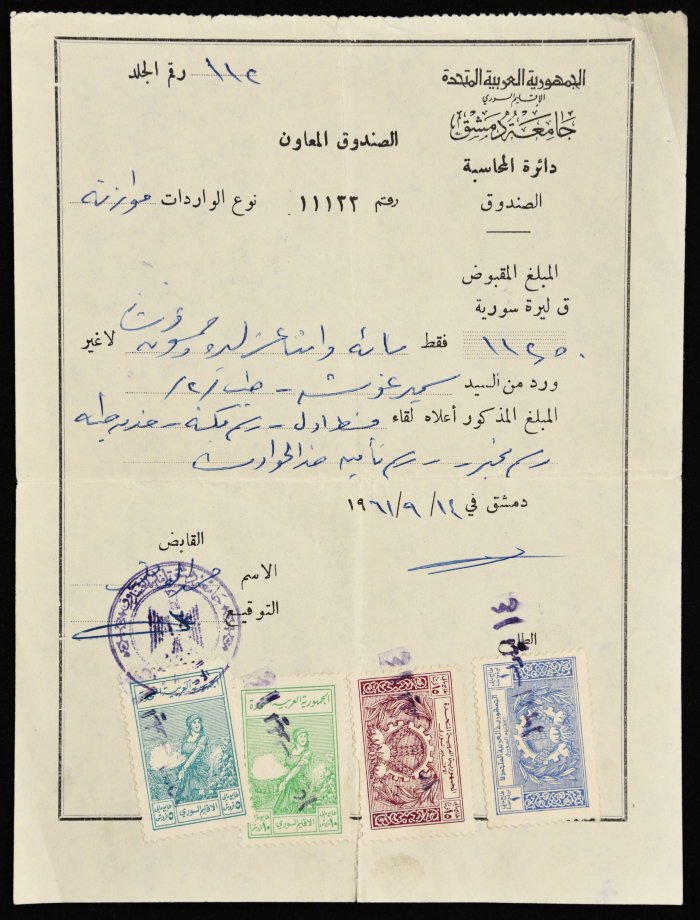 الجمهورية العربية المتحدة
الإقليم السوري
جامعة دمشق
دائرة المحاسبة
الصندوق
رقم الجلد ١١٢
الصندوق المعاون
رقم ١١١٣٣ نوع الواردات موازنة
المبلغ المقبوض
ق ليرة سورية
١١٢٥٠ فقط مائة واثنا عشر ليرة وخمسون قرشا لاغير
ورد من السيد سمير غوشه - طب /٢/
المبلغ المذكور أعلاه لقاء قسط اول - رسم مكتبة -
رسم مخبر - رسم تأمين ضد الحوادث
دمشق في ١٤/ ٩/ ١٩٦١
القابض
الاسم
التوقيع
الجمهورية العربية المتحدة
٥ قروش
الاقليم السوري
٥ قروش
الجمهورية العربية المتحدة
١٠ قروش
الاقليم السوري
١٠ قروش
الجمهورية العربية المتحدة
١
١